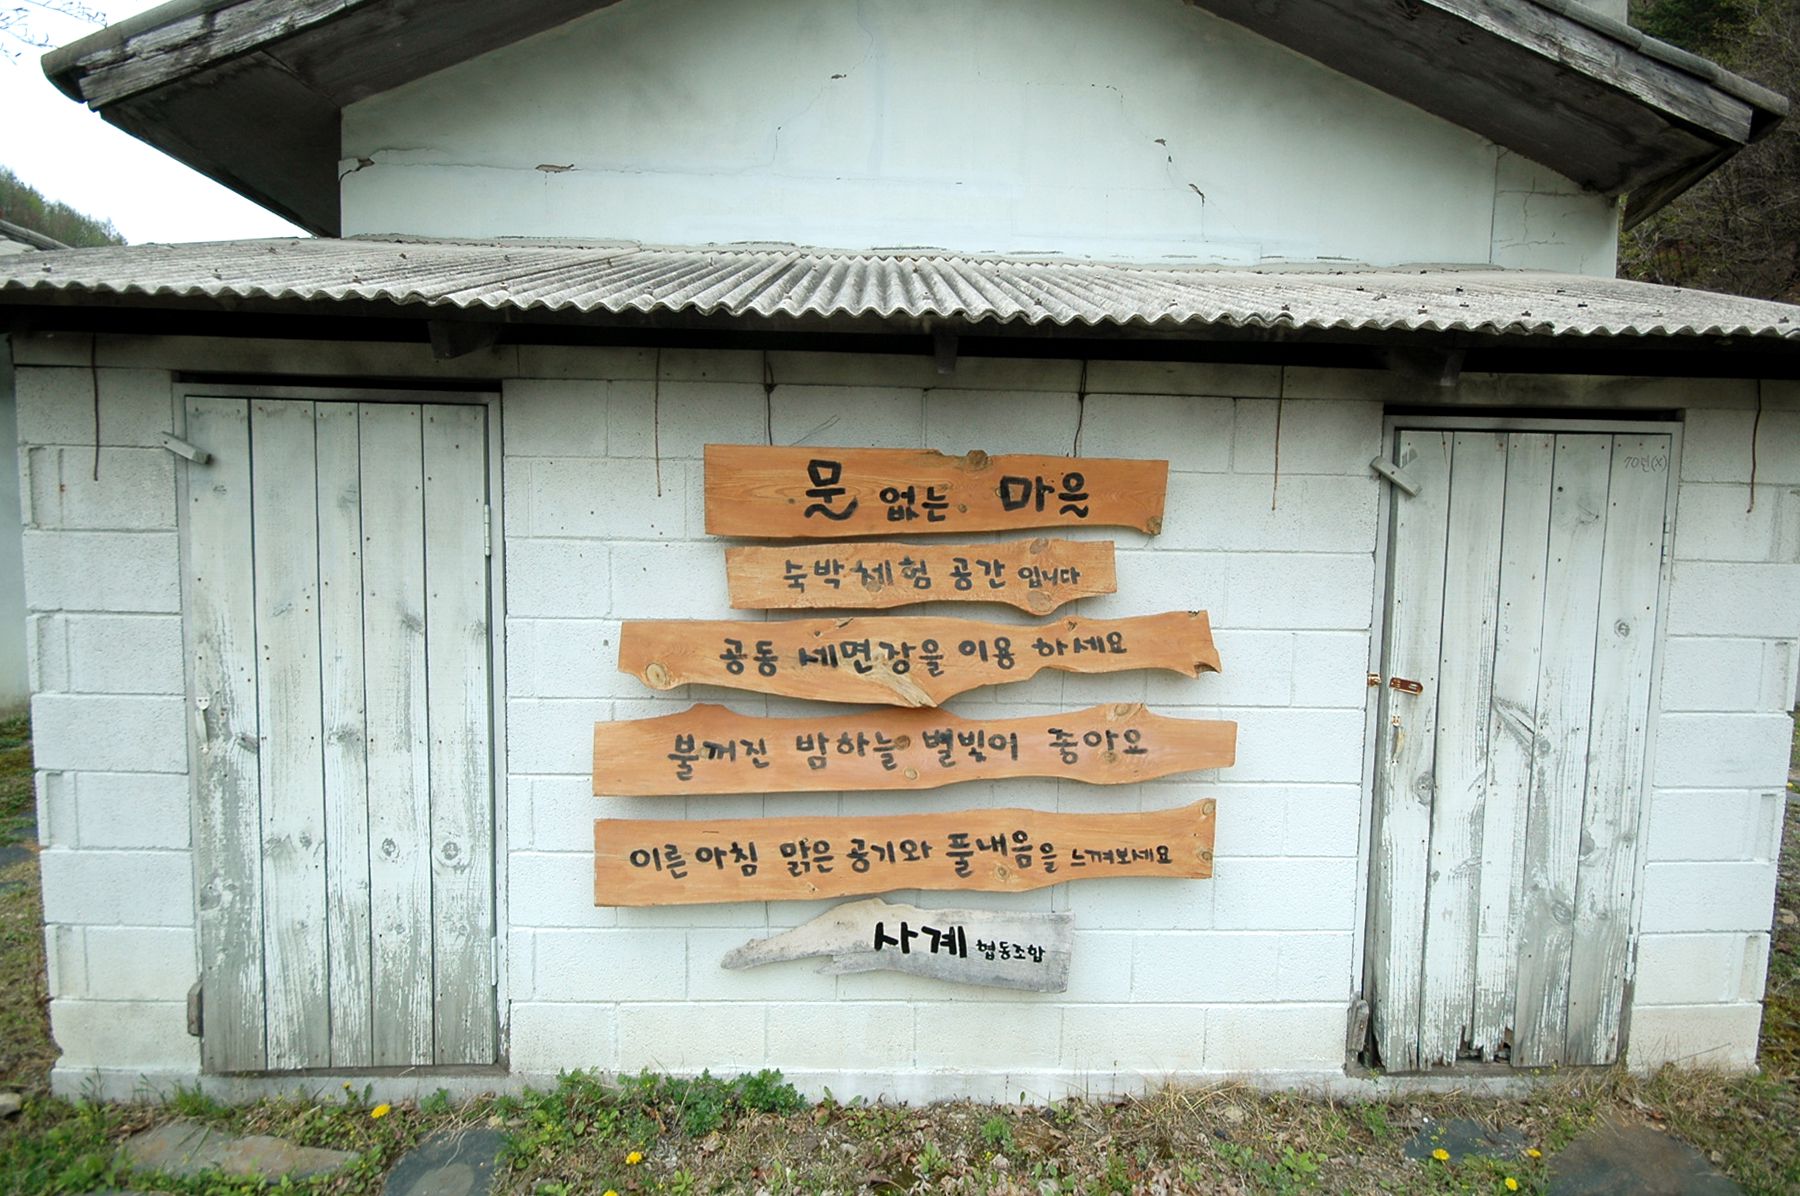 문 없는 마을
숙박체험 공간 입니다
공동 세면장을 이용 하세요
불꺼진 밤하늘 별빛이 좋아요
이른 아침 맑은 공기와 풀내음을 느껴보세요
사계 협동조합